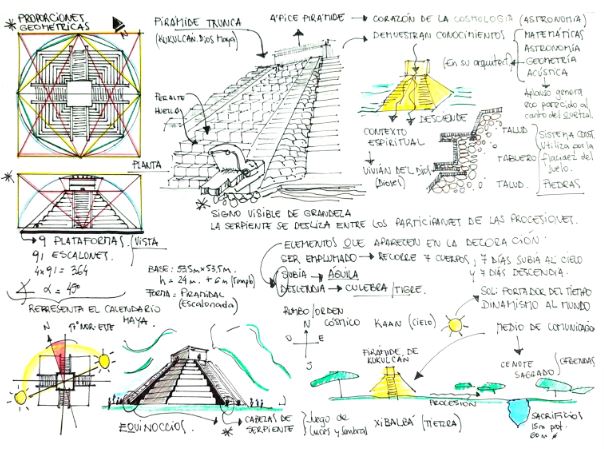 PROPORCIONES
GEOMETRICAS
PLANTA
9 PLATAFORMAS. VISTA
91 ESCALONES.
4x91= 364
α = 45°
REPRESENTA EL CALENDARIO
MAYA.
PIRÁMIDE TRUNCA
(KUKULCÁN. DIOS MAYA)
PERALTE
HUELLA
ÁPICE PIRÁMIDE
CORAZÓN DE LA COSMOLOGIA (ASTRONOMÍA)
DEMUESTRAN CONOCIMIENTOS
(En su arquitect.)
MATEMÁTICAS
ASTRONOMÍA
GEOMETRÍA
ACÚSTICA
Aplauso genera
eco parecido al
canto del quetzal
DESCIENDE
CONTEXTO
ESPIRITUAL
TALUD
TABLERO
TALUD.
SISTEMA CONST.
utiliza por la
suelo.
PIEDRAS
SIGNO VISIBLE DE GRANDEZA
LA SERPIENTE SE DESLIZA ENTRE LOS PARTICIPANTES DE LAS PROCESIONES.
ELEMENTOS QUE APARECEN EN LA DECORACIÓN:
SER EMPLUMADO → RECORRE 7 CUERPOS; 7 DÍAS SUBIA AL CIELO
Y 7 DÍAS DESCENDIA.
SUBÍA → ÁGUILA
DESCENDIA → CULEBRA/TIGRE.
BASE: 53,5m x 53,5m.
h = 24m. + 6m (templo)
FORMA = Piramidal
(Escalonada)
RUMBO/ORDEN
CÓSMICO
N
E
KAAN (CIELO)
SOL: PORTADOR DEL TIEMPO
DINAMISMO AL MUNDO
MEDIO DE COMUNICACIÓN
N
17° NOR-ESTE
EQUINOCCIOS
CABEZAS DE
SERPIENTE
Juego de
luces y sombras
PIRAMIDE DE
KUKULCÁN
PROCESIÓN
CENOTE
SAGRADO
OFRENDAS
XIBALBÁ (TIERRA)
SACRIFICIOS
15m prof.
60m